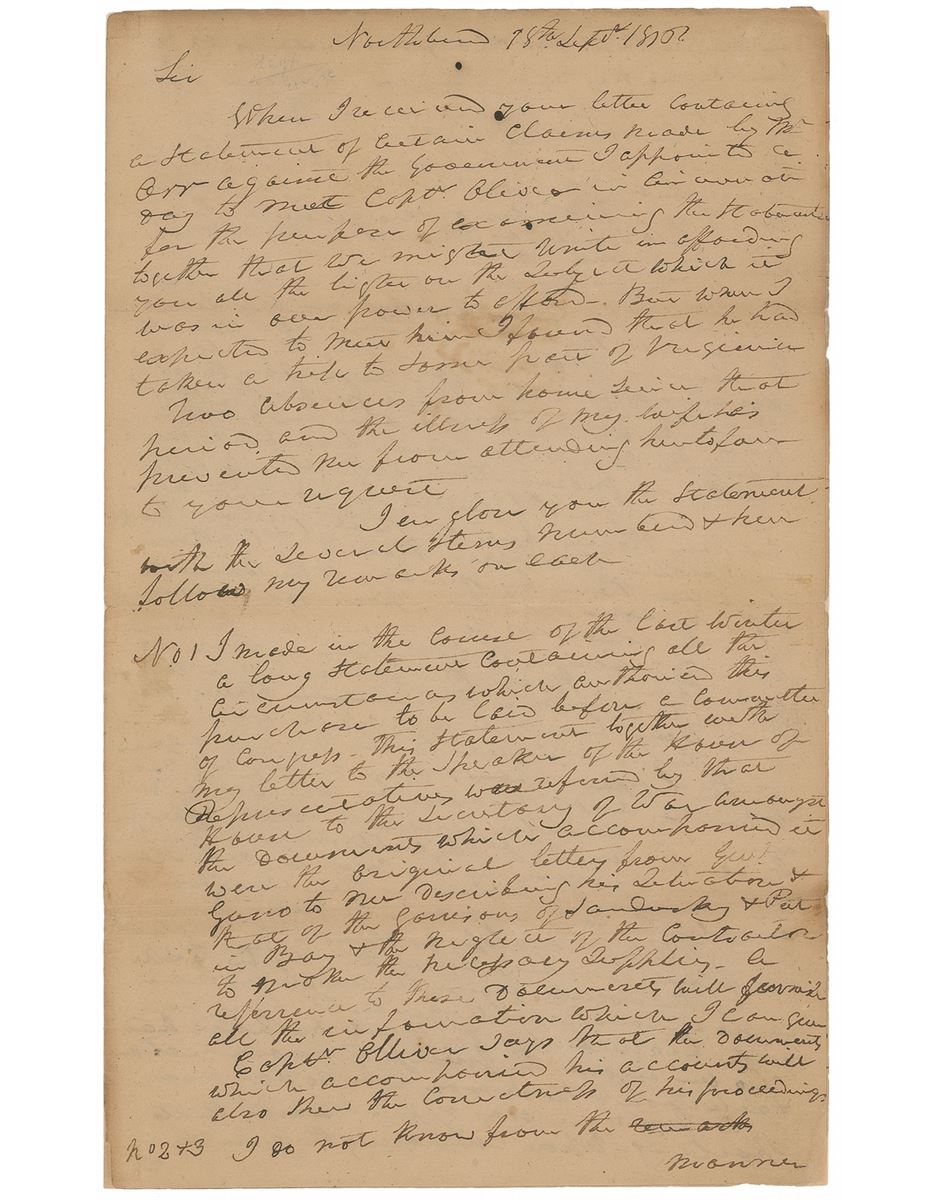 Northbend 18th Sept. 1816
Sir
When I received your letter containing
a Statement of Certain Claims made by Mr
Orr against the Government I appointed a
Day to meet Capt. Oliver in Cincinnati
for the purpose of examining the Statement
together that we might Unite in affording
you all the light on the Subject which it
was in our power to afford. But when I
expected to meet him I found that he had
taken a trip to some part of Virginia
Two absences from home since that
period and the illness of my wife has
prevented me from attending heretofore
to your request
I enclose you the Statement
with the Several Items numbered & here
follow my remarks on each
No 1 I made in the Course of the last Winter
a long Statement Containing all the
Circumstances which authorised this
purchase to be laid before a Committee
of Congress. This Statement together with
my letter to the Speaker of the House of
Representatives was referred by that
House to the Secretary of War amongst
the Documents which accompanied it
were the original letters from Genl
Gano to me describing his Situation &
that of the Garrisons of Sandusky & Put
in Bay & the neglect of the Contractor
to make the necessary Supplies. a
reference to these Documents will furnish
all the information which I can give
Capt. Olliver says that the documents
which accompanied his accounts will
also shew the Correctness of his proceedings
No 2 & 3 I do not know from the remarks
manner